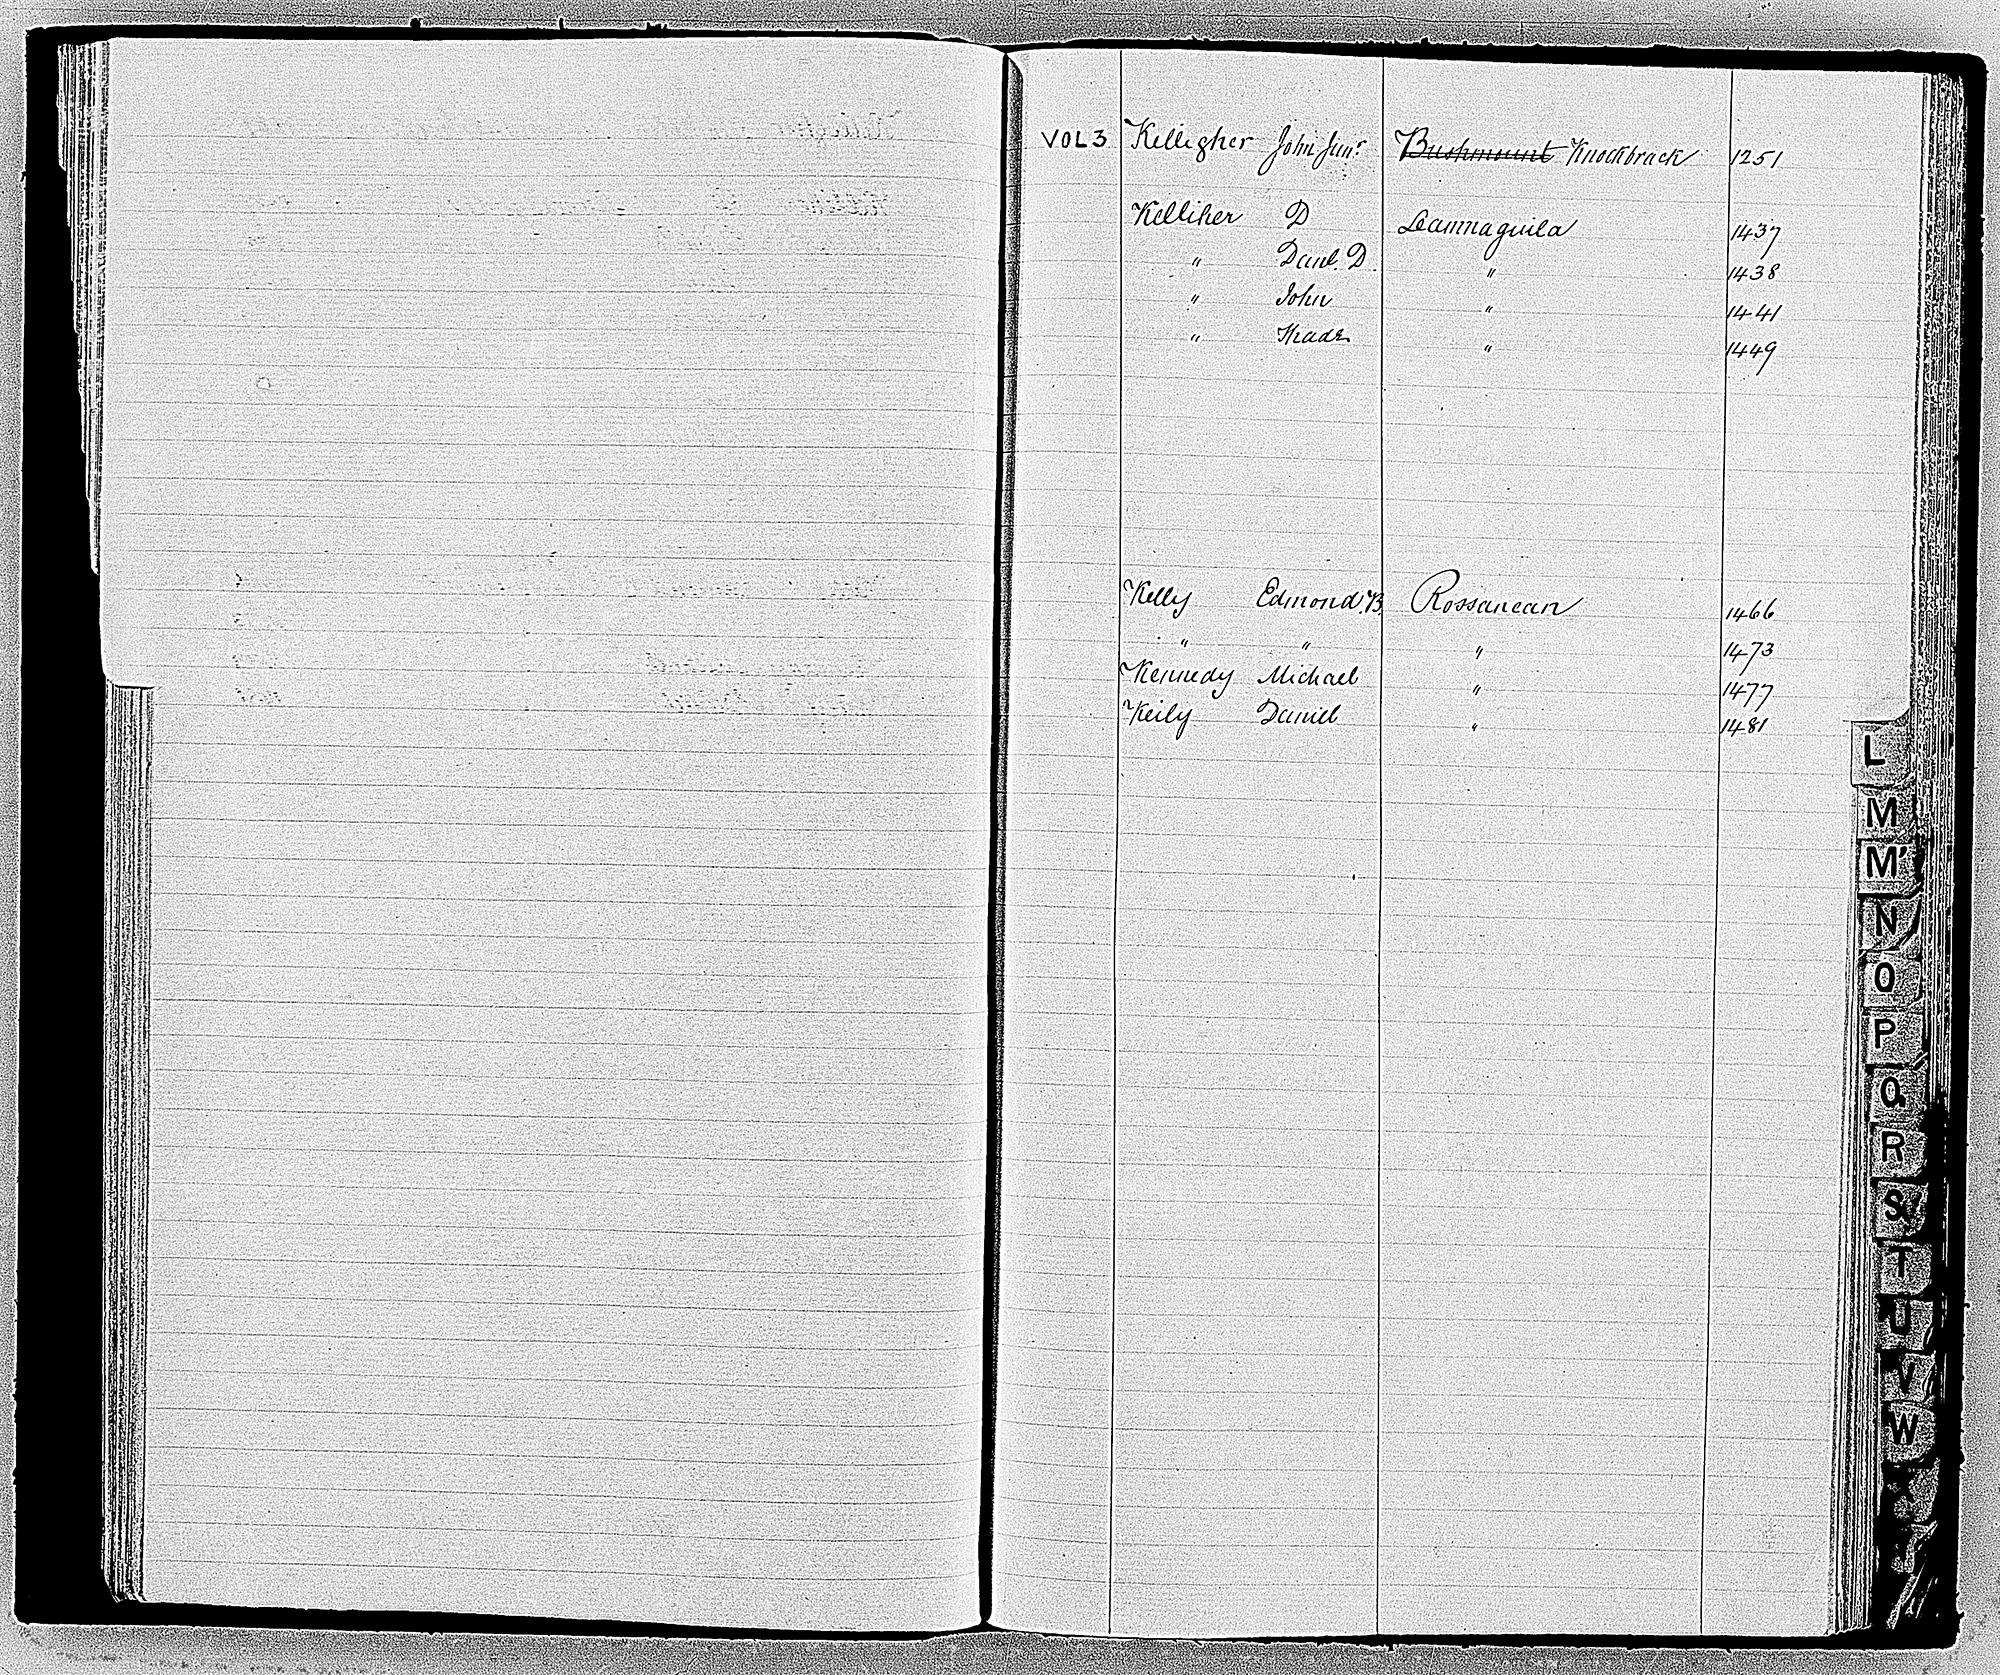 VOL 3 Kelligher John Junr Bushmount Knockbrack 1251
Kelliher D Leamnaguila 1437
" Danl. D. " 1438
" John " 1441
" Thads " 1449
Kelly Edmond. B. Rossanean 1466
" " " 1473
Kennedy Michael " 1477
Keily Daniel " 1481
L
M
M'
N
O
P
Q
R
S
T
U
V
W